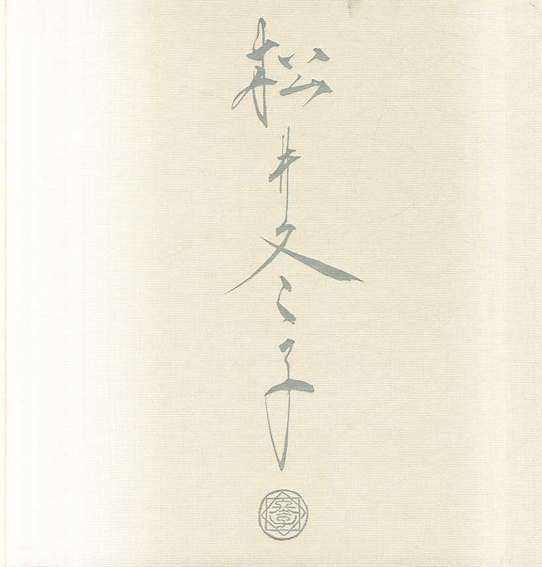 松井冬子